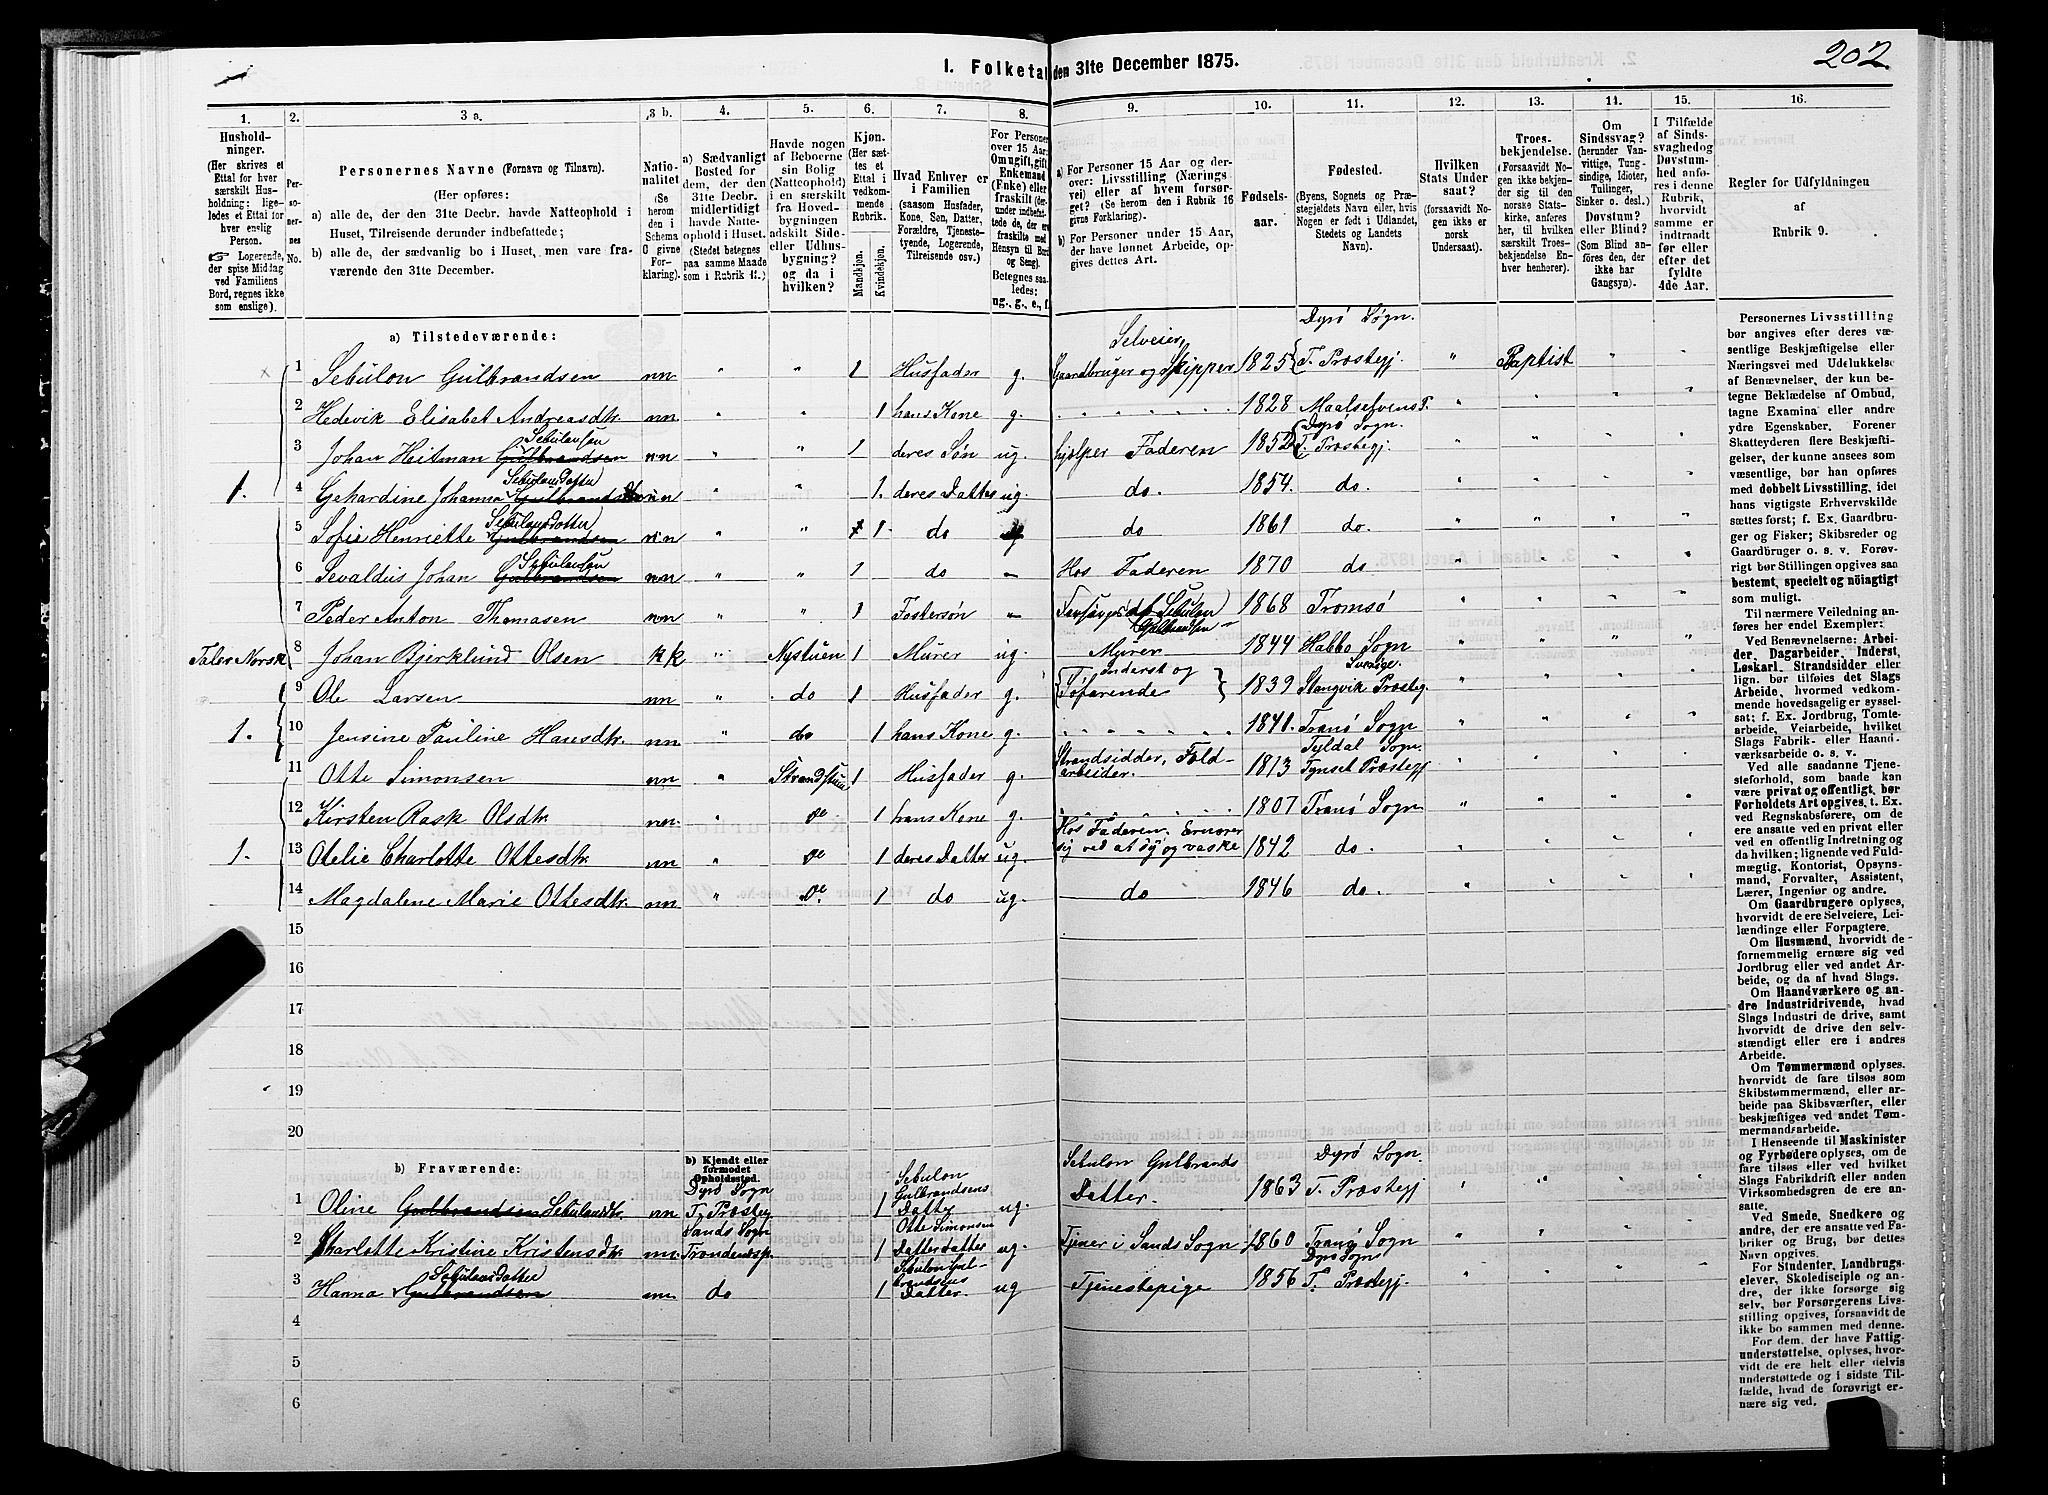 202
1. Folketal den 31te December 1875.
1. 2. 3 a. 3 b. 4. 5. 6. 7. 8. 9. 10. 11. 12. 13. 14. 15. 16.
Husholdninger.
(Her skrives et Ettal for hver særskilt Husholdning; ligeledes et Ettal for hver enslig Person.
☞ Logerende, der spise Middag ved Familiens Bord, regnes ikke som enslige).
Personernes No.
Personernes Navne (Fornavn og Tilnavn).
(Her opføres:
a) alle de, der den 31te Decbr. havde Natteophold i Huset, Tilreisende derunder indbefattede;
b) alle de, der sædvanlig bo i Huset, men vare fraværende den 31te December.
Nationalitet (Se herom den i Schema O givne Forklaring).
a) Sædvanligt Bosted for dem, der den 31te Decbr. midlertidigt havde Natteophold i Huset. (Stedet betegnes paa samme Maade som i Rubrik 11.)
Havde nogen af Beboerne sin Bolig (Natteophold) i en særskilt fra Hovedbygningen adskilt Side- eller Udhusbygning? og da i hvilken?
Kjøn. (Her sættes et Ettal i vedkommende Rubrik.
Mandkjøn. Kvindekjøn.
Hvad Enhver er i Familien (saasom Husfader, Kone, Søn, Datter, Forældre, Tjenestetyende, Logerende, Tilreisende osv.)
For Personer over 15 Aar: Om ugift, gift, Enkemand (Enke) eller fraskilt (derunder indbefattede de, der ere fraskilte med Hensyn til Bord og Seng). Betegnes saaledes: ug., g., e., f.
a) For Personer 15 Aar og derover: Livsstilling (Næringsvei) eller af hvem forsørget? (Se herom den i Rubrik 16 givne Forklaring).
b) For Personer under 15 Aar, der have lønnet Arbeide, opgives dettes Art.
Fødselsaar.
Fødested. (Byens, Sognets og Præstegjeldets Navn eller, hvis Nogen er født i Udlandet, Stedets og Landets Navn).
Hvilken Stats Undersaat? (forsaavidt Nogen ikke er norsk Undersaat).
Troesbekjendelse. (Forsaavidt Nogen ikke bekjender sig til den norske Statskirke, anføres her, til hvilken særskilt Troesbekjendelse Enhver henhører).
Om Sindssvag? (herunder Vanvittige, Tungsindige, Idioter, Tullinger, Sinker o. desl.) Døvstum? eller Blind? (Som Blind anføres den, der ikke har Gangsyn).
I Tilfælde af Sindssvaghed og Døvstumhed anføres i denne Rubrik, hvorvidt samme er indtraadt før eller efter det fyldte 4de Aar.
Regler for Udfyldningen af Rubrik 9.
a) Tilstedeværende:
1 Sebulon Gulbrandsen nn " " 1 Husfader g. Selveier, Gaardbruger og Skipper 1825 Dyrø Sogn. T. Præstegj. " Baptist " "
2 Hedevik Elisabet Andreasdtr. nn. " " 1 hans Kone g. " 1828 Maalselvens P. " " " "
3 Johan Heitman Gulbrandsen Sebulonsen nn " " 1 deres Søn ug. hjælper Faderen 1852 Dyrø Sogn. T. Præstegj. " " " "
1. 4 Gehardine Johanna Sebulonsdatter nn " " 1. deres Datter ug. do. 1854. do. " " " "
5 Sofie Henriette Gulbrandsen Sebulonsdatter nn " " 1. do do 1861 do. " " " "
6 Sevaldus Johan Gulbrandsen Sebulonsen nn " " 1 do " Hos Faderen 1870 do. " " " "
7 Peder Anton Thomasen nn " " 1 Fostersøn " Forsørges af Sebulon Gulbrandsen 1868 Tromsø " " " "
Taler Norsk 8 Johan Bjerklund Olsen kk " Nystuen 1 Murer ug. Murer 1844 Habbo Sogn Sverige. " " " "
9 Ole Larsen nn " do 1 Husfader g. Inderst og Søfarende 1839 Stangvik Præsteg. " " " "
1. 10 Jensine Pauline Hansdtr. nn. " do 1 hans Kone g. " 1841. Tranø Sogn " " " "
11 Otte Simonsen nn " Strandstuen 1 Husfader g. Strandsidder, Jordarbeider. 1813 Tyldal Sogn. Tynset Præstegj " " " "
12 Kirsten Rask Olsdtr. nn. " do 1 hans Kone g. " 1807 Tranø Sogn " " " "
1. 13 Otelie Charlotte Ottesdtr. nn " do 1 deres Datter ug. Hos Faderen. Ernærer sig ved at sy og vaske 1842 do. " " " "
14 Magdalene Marie Ottesdtr. nn " do. 1 do ug. do 1846 do. " " " "
15
16
17
18
19
20
b) Fraværende:
b) Kjendt eller formodet Opholdssted.
1 Oline Gulbrandsen Sebulonsdtr. nn Dyrø Sogn T. Præsteg 1 Sebulon Gulbrandsens Datter ug. Sebulon Gulbrands Datter. 1863 Dyrø Sogn. T. Præstegj " " " "
2 Charlotte Kristine Kristensdtr. nn. Sands Sogn Trondenæs P. 1 Otte Simonsen Datterdatter ug. Tjener i Sands Sogn 1860 Tranø Sogn " " " "
3 Hanna Gulbrandsen Sebulonsdatter nn do 1 Sebulon Gulbrandsens Datter. ug Tjenestepige 1856 Dyrø Sogn T. Præstegj. " " " "
4
5
6
Personernes Livsstilling bør angives efter deres væsentlige Beskjæftigelse eller Næringsvei med Udelukkelse af Benævnelser, der kun betegne Beklædelse af Ombud, tagne Examina eller andre ydre Egenskaber. Forener Skatteyderen flere Beskjæftigelser, der kunne ansees som væsentlige, bør han opføres med dobbelt Livsstilling, idet hans vigtigste Erhvervskilde sættes først; f. Ex. Gaardbruger og Fisker; Skibsreder og Gaardbruger o. s. v. Forøvrigt bør Stillingen opgives saa bestemt, specielt og nöiagtigt som muligt.
Til nærmere Veiledning anføres her endel Exempler:
Ved Benævnelserne: Arbeider, Dagarbeider, Inderst, Løskarl, Strandsidder eller lign. bør tilføies det Slags Arbeide, hvormed vedkommende hovedsagelig er sysselsat; f. Ex. Jordbrug, Tomtearbeide, Veiarbeide, hvilket Slags Fabrik- eller Haandværksarbeide o. s. v.
Ved alle saadanne Tjenesteforhold, som baade kan være privat og offentligt, bør Forholdets Art opgives, t. Ex. ved Regnskabsførere, om de ere ansatte ved en privat eller ved en offentlig Indretning og da hvilken; lignende ved Fuldmægtig, Kontorist, Opsynsmand, Forvalter, Assistent, Lærer, Ingeniør og andre.
Om Gaardbrugere oplyses, hvorvidt de ere Selveiere, Leilændinge eller Forpagtere.
Om Husmænd, hvorvidt de fornemmelig ernære sig ved Jordbrug eller ved andet Arbeide, og da af hvad Slags.
Om Haandværkere og andre Industridrivende, hvad Slags Industri de drive, samt hvorvidt de drive den selvstændigt eller ere i andres Arbeide.
Om Tømmermænd oplyses, hvorvidt de fare tilsøs som Skibstømmermænd, eller arbeide paa Skibsværfter, eller beskjæftiges ved andet Tømmermandsarbeide.
I Henseende til Maskinister og Fyrbødere oplyses, om de fare tilsøs eller ved hvilket Slags Fabrikdrift eller anden Virksomhedsgren de ere ansatte.
Ved Smede, Snedkere og andre, der ere ansatte ved Fabriker og Brug, bør dettes Navn opgives.
For Studenter, Landbrugselever, Skoledisciple og andre, der ikke forsørge sig selv, bør Forsørgerens Livsstilling opgives, forsaavidt de ikke bo sammen med denne.
For dem, der have Fattigunderstøttelse, oplyses, hvorvidt de ere helt eller delvis understøttede og i sidste Tilfælde, hvad de forøvrigt ernære sig ved.